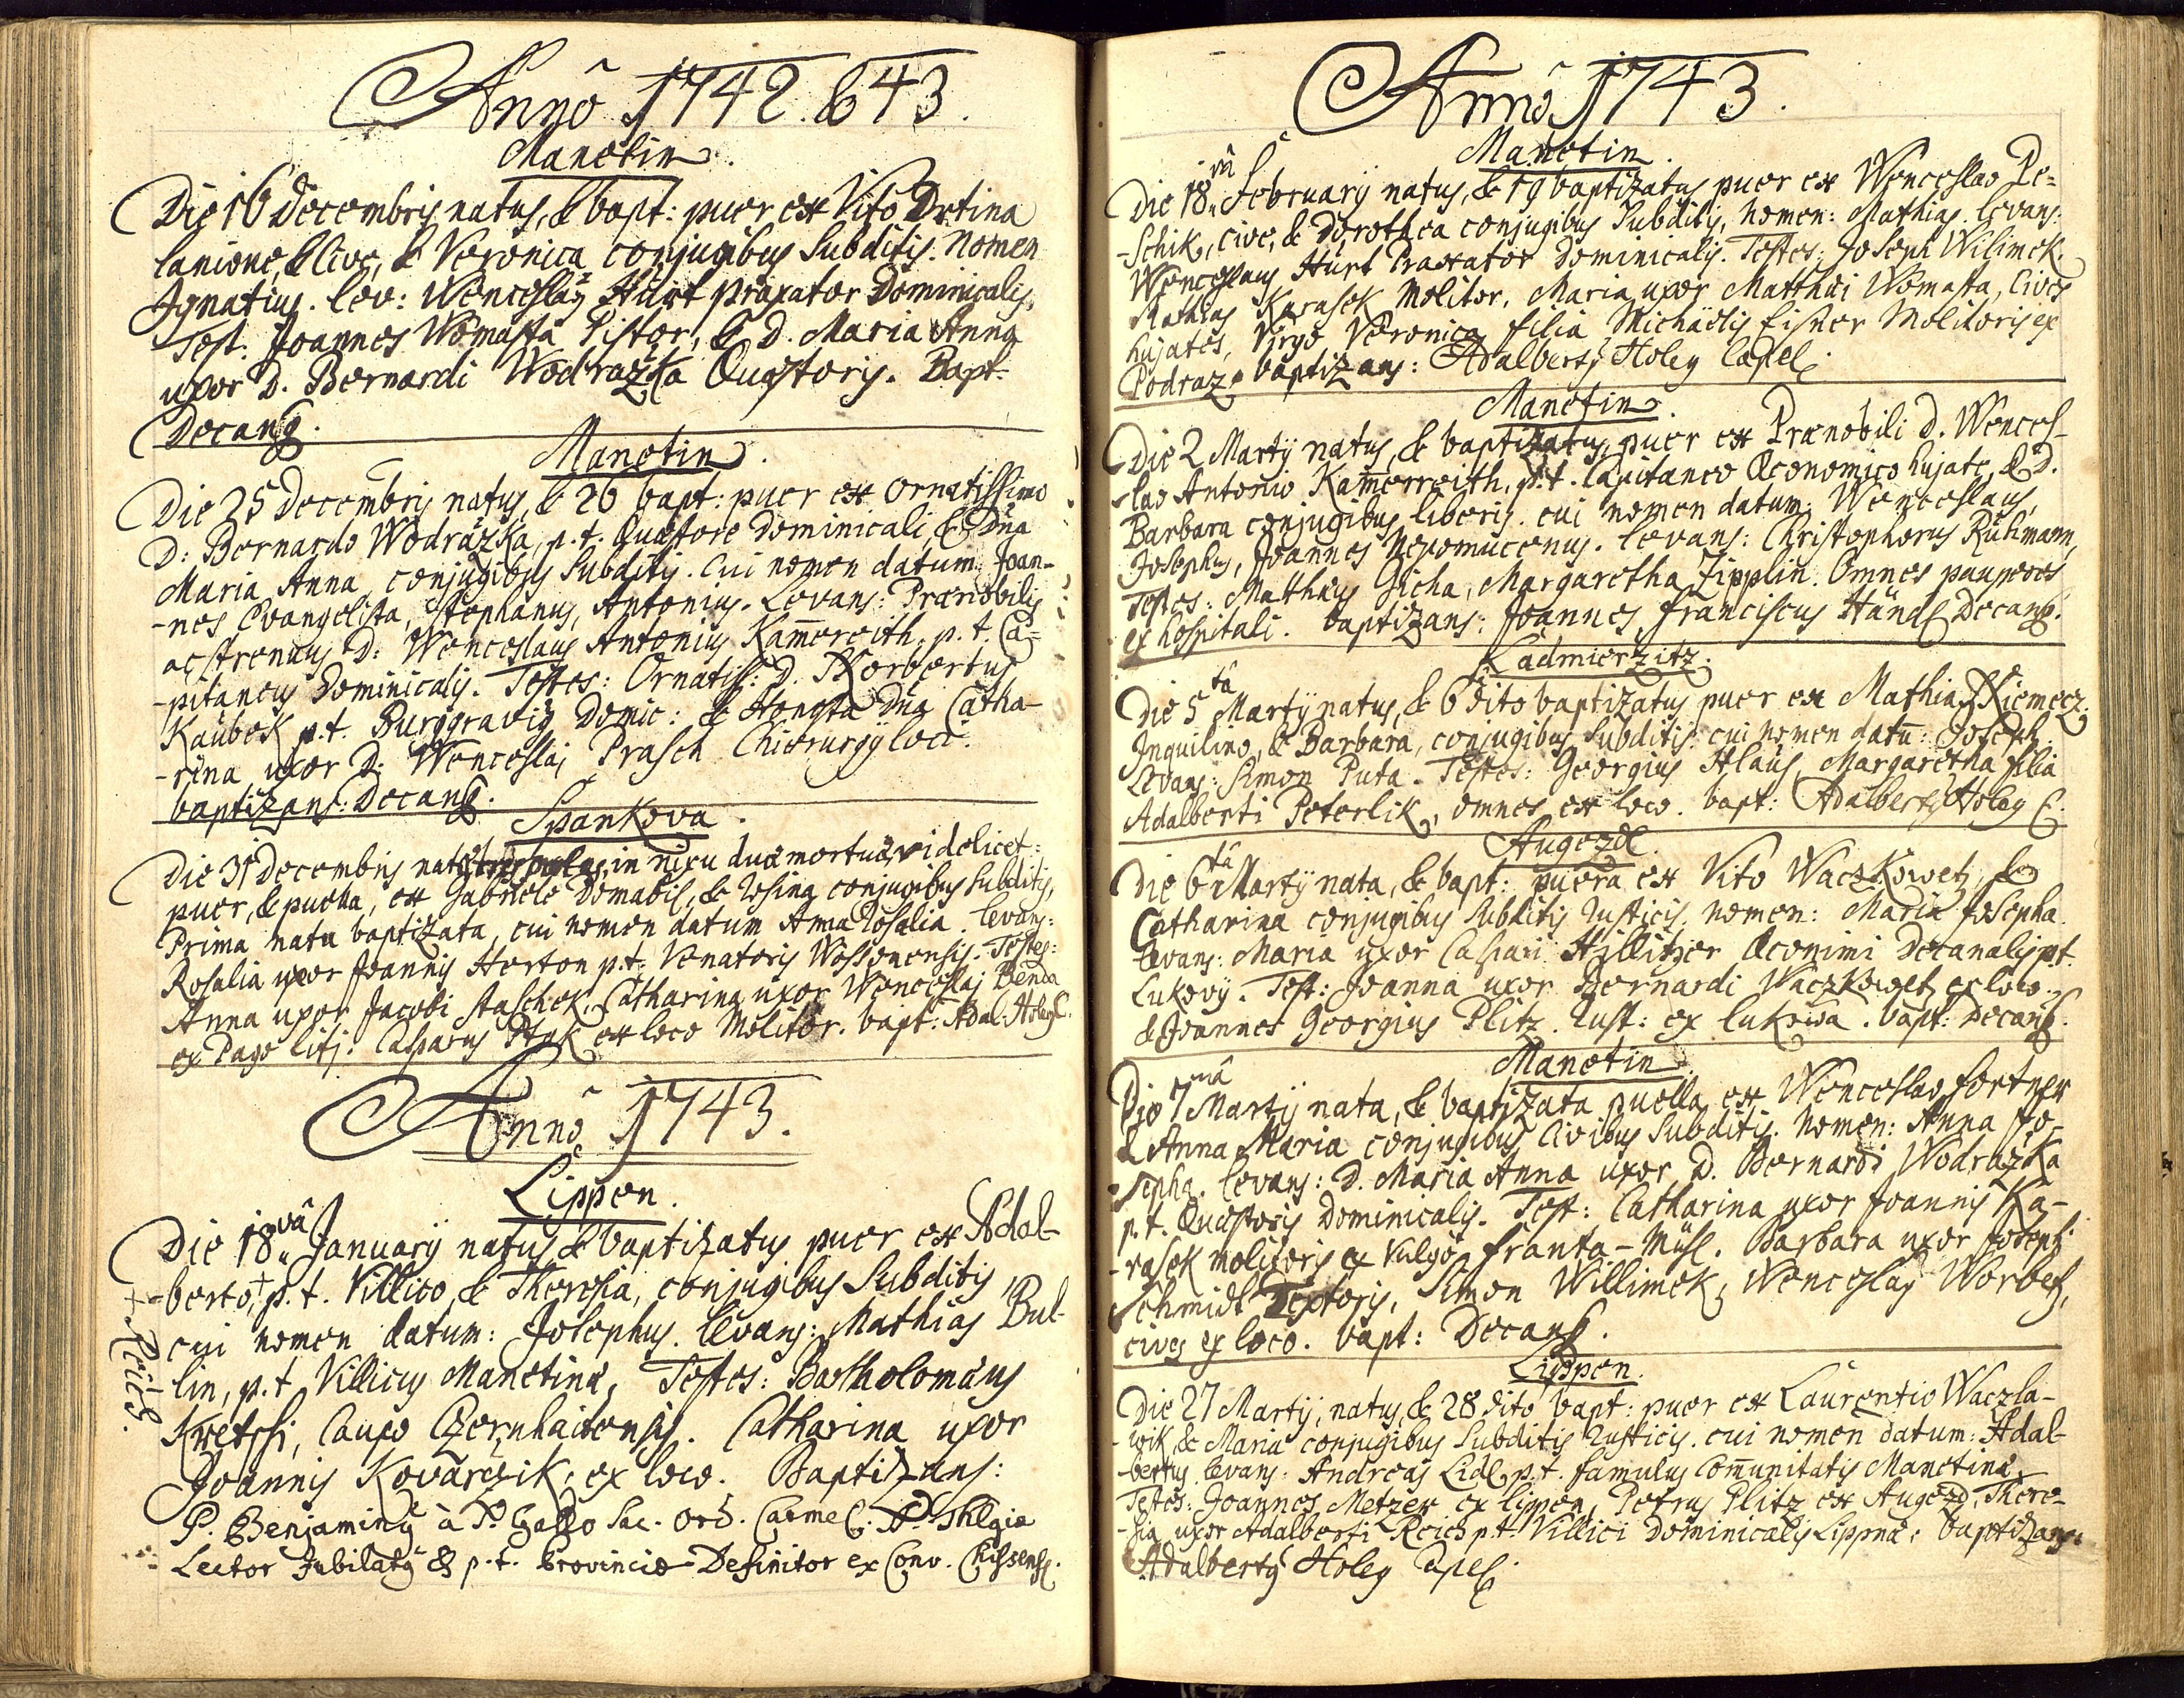 Anno 1742. & 43.
Manetin.
Die 16 Decembris natus, & bapt: puer ex Vito Drtina
lanione, & Cive, & Veronica conjugibus Subditis. Nomen
Ignatius. Lev: Wenceslaus Hürt praxator Dominicalis,
Test. Joannes Womasta Pistor, & D. Maria Anna
uxor D. Bernardi Wodrazka Quaestoris. Bapt.
Decanus.
Manetin.
Die 25 Decembris natus, & 26 bapt: puer ex ornatissimo
D: Bernardo Wodrazka, p.t. Quaestore Dominicali & Dna
Maria Anna, conjugibus Subditis. Cui nomen datum: Joan-
-nes Evangelista, Stephanus, Antonius. Levans: Praenobilis
ac strenuus D: Wenceslaus Antonius Kamereith, p.t. Ca-
-pitaneus Dominicalis. Testes: Ornatiss: D. Norbertus
Kaubek p.t. Burggravius Domic: & Honesta Dna Catha-
-rina uxor D. Wenceslai Prasch Chirurgy loci.
baptizans: Decanus.
Spankova.
Die 31 Decembris natae in nixu duae mortuae, videlicet:
puer, & puella, ex Gabriele Domabil, & Rosina conjugibus Subditis,
Prima nata baptizata, cui nomen datum Anna Rosalia. Levans:
Rosalia uxor Joannis Horton p.t. Venatoris Wossonensis. Testes:
Anna uxor Jacobi Staschek, Catharina uxor Wenceslai Benda
ex Pago Litj: Casparus Ptak ex loco Molitor. bapt: Adal: Holey C.
Anno 1743.
Lippen.
Die 18va January natus & baptizatus puer ex Adal-
-berto, + p.t. Villico, & Theresia, conjugibus Subditis,
cui nomen datum: Josephus. Levans: Mathias Bul-
lin, p.t. Villicus Manetinae, Testes: Bartholomaeus
Kretschi, Caupo Czernhaitensis. Catharina uxor
Joannis Kovarczik, ex loco. Baptizans:
P. Benjaminus à S. Gallo Sac. Ord. Carmel: SS. Thlgiae
Lector Jubilatus & p.t. Provinciae Definitor ex Conv. Chissensi.
+ Reich.
Anno 1743.
Manetin.
Die 18va February natus, & 19 baptizatus puer ex Wenceslao Pe-
-schik, cive, & Dorothea conjugibus Subditis, nomen: Mathias. Levans:
Wenceslaus Hürt Praxator Dominicalis. Testes: Joseph Wilimek.
Mathias Karasek Molitor. Maria uxor Matthaei Womasta, Cives
hujates, Virgo Veronica filia Michaëlis Eisner Molitoris ex
Podraz. baptizans: Adalbertus Holey Capel.
Manetin.
Die 2 Marty natus, & baptizatus, puer ex Praenobili D. Wences-
-lao Antonio Kamerreith, p.t. Capitaneo Oeconomico hujate, & D.
Barbara conjugibus liberis. cui nomen datum: Wenceslaus,
Josephus, Joannes Nepomucenus. Levans: Christophorus Rühmann,
Testes: Matthaeus Gicha, Margaretha Zipplin. Omnes pauperes
ex hospitali. baptizans: Joannes Franciscus Händl Decanus.
Ladmierzitz.
Die 5ta Marty natus, & 6 dito baptizatus puer ex Mathia Niemecz
Inquilino, & Barbara, conjugibus Subditis. cui nomen datu: Joseph.
Levans: Simon Puta. Testes: Georgius Hlaus, Margaretha filia
Adalberti Peterlik, omnes ex loco. bapt: Adalbertus Holey C.
Augezd.
Die 6ta Marty nata, & bapt: puera ex Vito Waczkowetz, &
Catharina conjugibus Subditis Rusticis. nomen: Maria Josepha.
Levans: Maria uxor Caspari Hillitzer Oeconimi Decanalis p.t.
Lukovy. Test: Joanna uxor Bernardi Waczkowetz ex loco.
& Joannes Georgius Plitz. Rust: ex Lukowa. bapt: Decanus.
Manetin.
Die 7ma Marty nata, & baptizata puella ex Wenceslao Fortner
& Anna Maria conjugibus Civibus Subditis. Nomen: Anna Jo-
-sepha. Levans: D. Maria Anna uxor D. Bernardi Wodrazka
p.t. Quaestoris Dominicalis. Test: Catharina uxor Joannis Ka-
-rasek molitoris ex Vulgo Franta-Mühl. Barbara uxor Josephi
Schmidt Textoris. Simon Willimek, Wenceslaus Worbes,
cives ex loco. bapt: Decanus.
Lippen.
Die 27 Marty, natus, & 28 dito bapt: puer ex Laurentio Waczla-
-wik & Maria conjugibus Subditis Rusticis. cui nomen datum: Adal-
-bertus. Levans: Andreas Lidl, p.t. famulus Comunitatis Manetinae,
Testes: Joannes Metzer ex Lippen, Petrus Plitz ex Augezd, There-
-sia uxor Adalberti Reich p.t. Villici Dominicalis Lippnae: baptizans
Adalbertus Holey Capel.